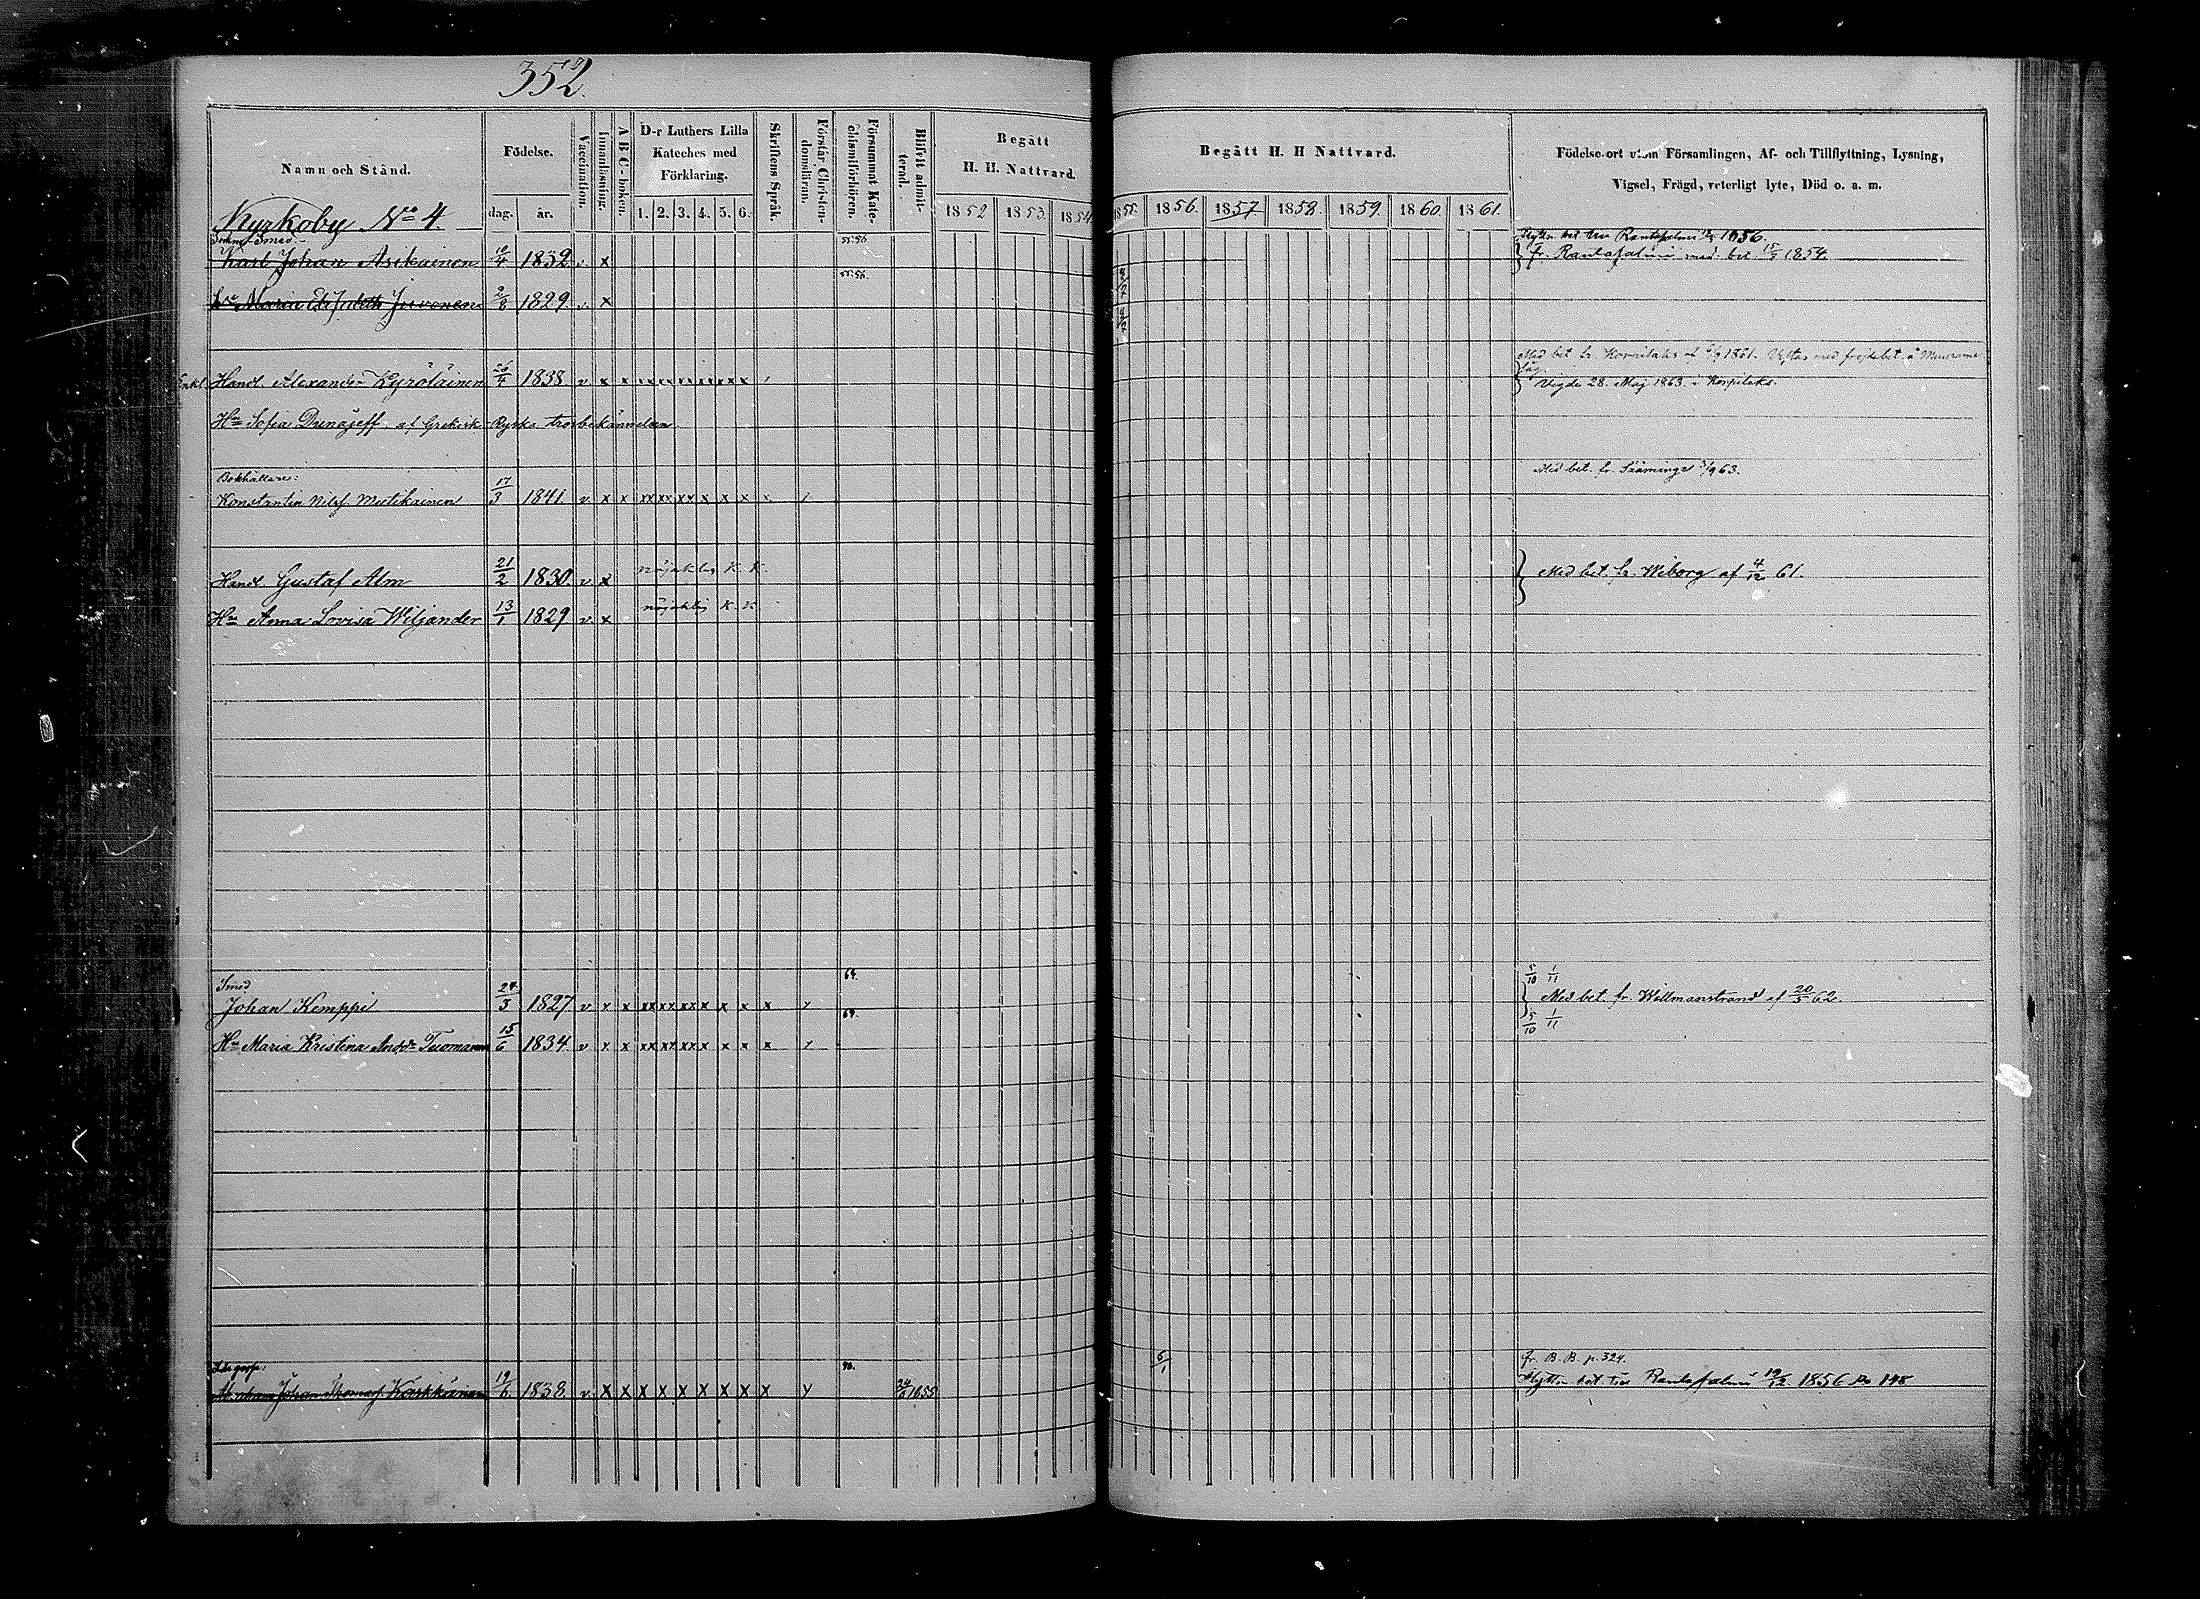 352.
Namn och Stånd.
Födelse.
dag. år.
Vaccination.
Innanläsning.
A B C-boken.
D-r Luthers Lilla
Kateches med
Förklaring.
1. 2. 3. 4. 5. 6.
Skriftens Språk.
Förstår Christen-
domsläran.
Försummat Kate-
chismiförhören.
Blifvit admit-
terad.
Begått
H. H. Nattvard.
1852 1853. 1854
Begått H. H Nattvard.
1855. 1856. 1857 1858. 1859. 1860. 1861.
Födelse-ort utom Församlingen, Af- och Tillflyttning, Lysning,
Vigsel, Frägd, veterligt lyte, Död o. a. m.
Kyrkoby No 4.
Smed
Karl Johan Asikainen 10/4 1832 v x 55.56 fr. Rantasalmi med bet 15/7 1854.
Hu Maria Elisabeth Juvonen 2/8 1829 v x 55.56.
Handl. Alexander Kyrötäinen 26/4 1838 v x x xx xx xx x x x
Vigde 28. Maj 1863. i Korpilaks.
Hu Sofia Dunajeff af Grekisk Ryska trosbekännelsen
Bokhållare: Med bet. fr. Sääminge 3/9 63.
Konstantin Nilsf. Mustikainen 17/3 1841. v x x xx xx xx x x x x
Handl Gustaf Alm 21/2 1830 v x nöjaktig K. K. Med bet. fr. Wiborg af 4/12 61.
Hu Anna Lovisa Wiljander 13/1 1829 v x nöjaktig K. K.
Smed 64. 5/10 1/11
Johan Kemppi 24/3 1827 v x x xx xx xx x x x x y Med bet. fr. Willmanstrand af 20/5 62.
Hu Maria Kristina Andsdr Tuomainen 15/6 1834 v x x xx xx xx x x x x y 5/10 1/11
fr. B. B. p. 324.
Abraham Johan Thomasf Karkkainen 19/6 1838 v x x x x x x x x x y 24/6 1855 6/1 Flytt. bet till Rantasalmi 19/12 1856 No 148